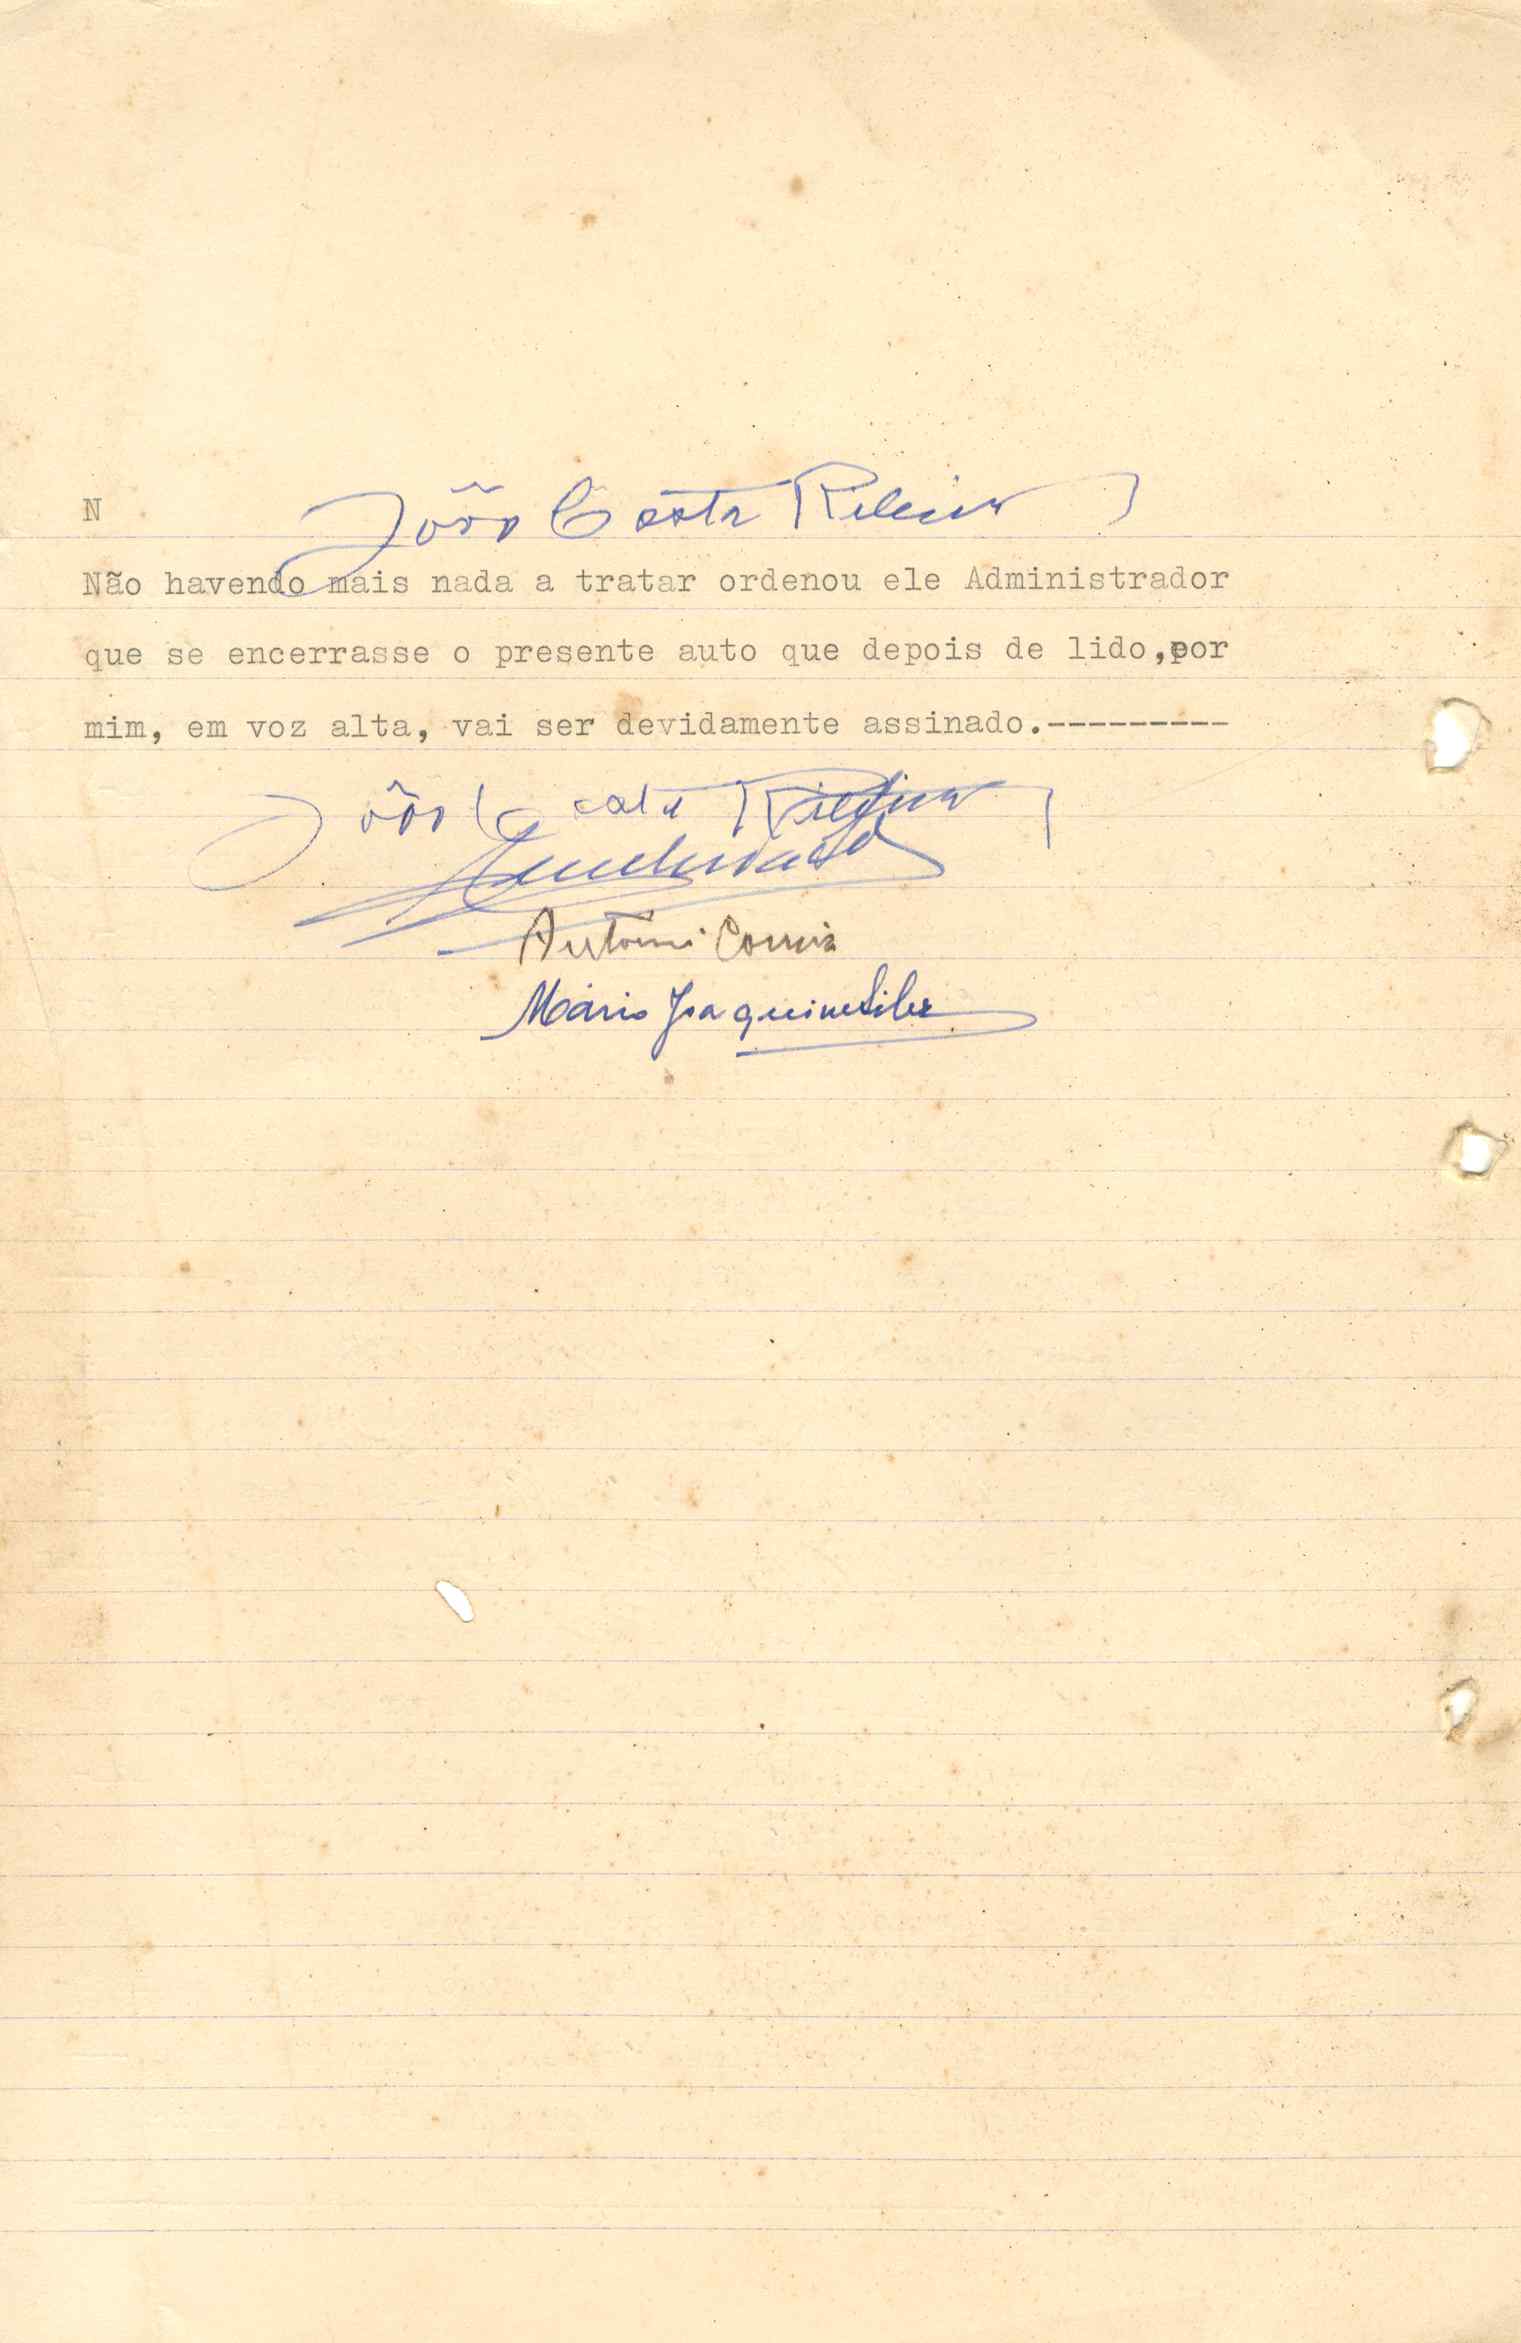 N João Costa Ribeiro
Não havendo mais nada a tratar ordenou ele Administrador
que se encerrasse o presente auto que depois de lido,por
mim, em voz alta, vai ser devidamente assinado.---------
João Costa Ribeiro
António Correia
Mário Joaquim Silva